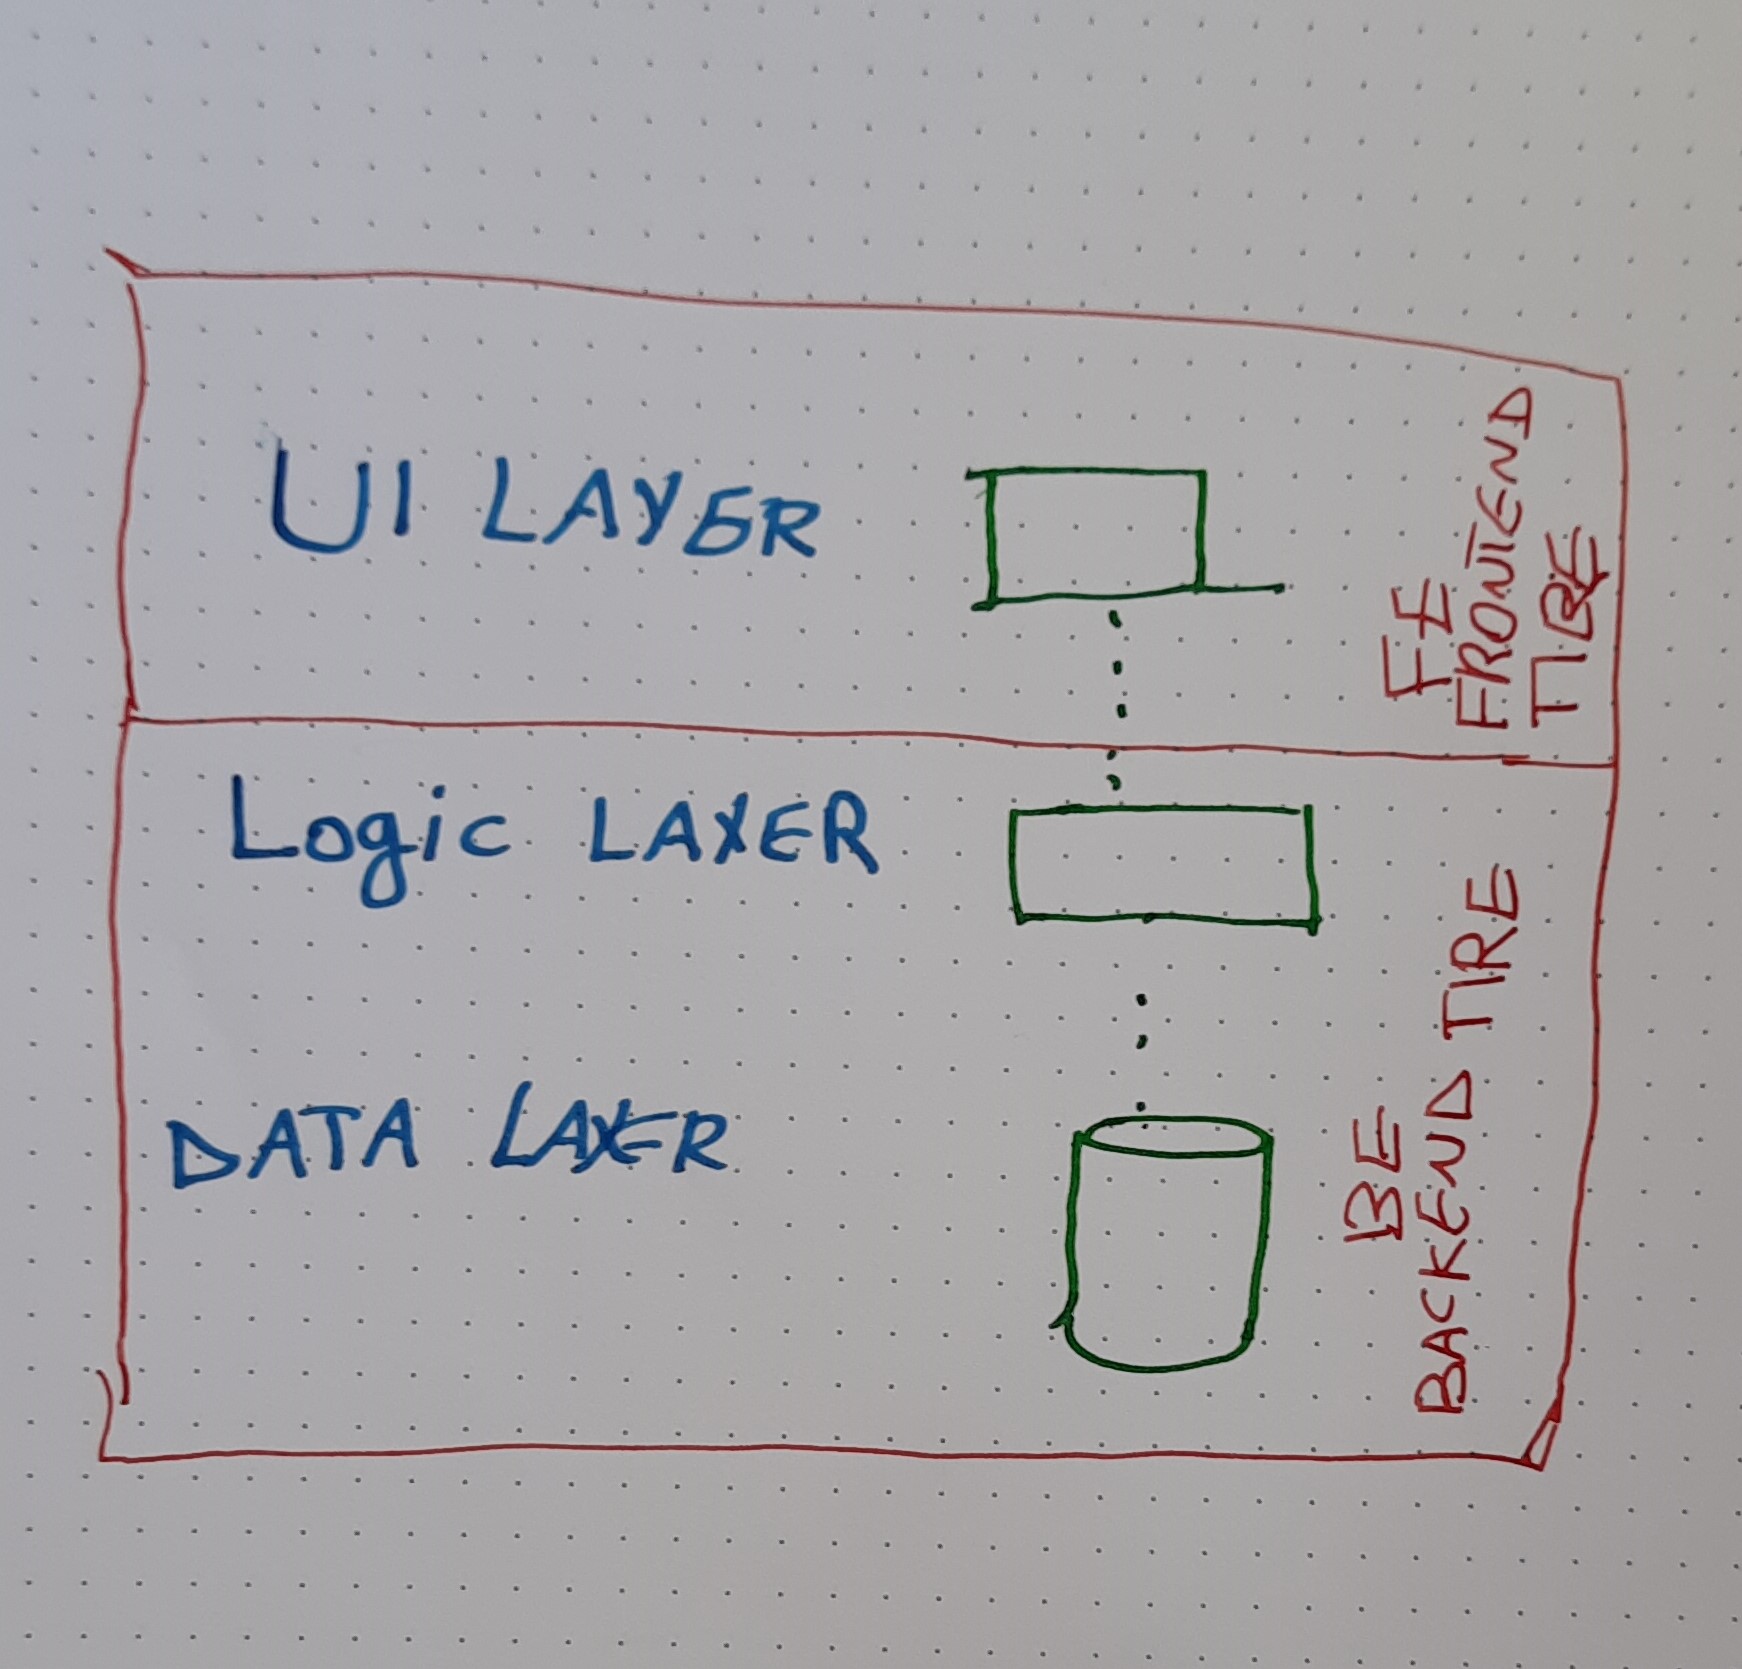 UI LAYER
FE
FRONTEND
TIRE
Logic LAYER
DATA LAYER
BE
BACKEND TIRE